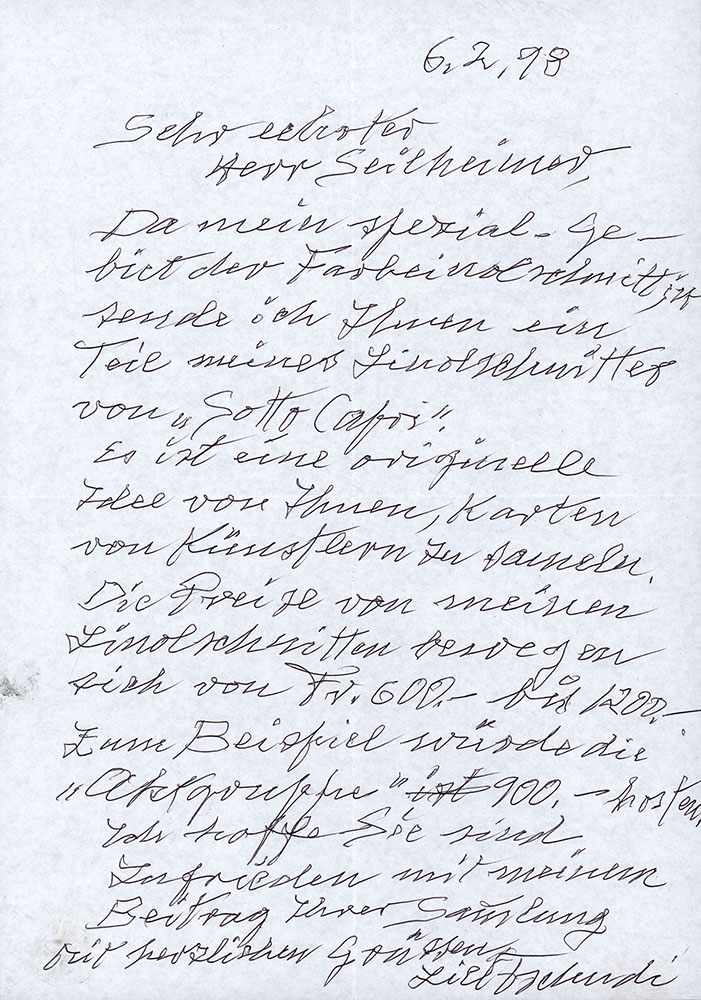 6.2.98
Sehr geehrter
Herr Seilheimer,
Da mein spezial-Ge-
biet der Farbeinolschnitt ist
sende ich Ihnen ein
Teil meines Linolschnittes
von „Sotto Capri".
Es ist eine originelle
Idee von Ihnen, Karten
von Künstlern zu sameln.
Die Preise von meinen
Linolschnitten bewegen
sich von Fr. 600.- bis 1200.-
Zum Beispiel würde die
„Aktgruppe" ist 900.- kosten
Ich hoffe Sie sind
zufrieden mit meinem
Beitrag Ihrer Samlung
mit herzlichen Grüssen
Lill Tschudi